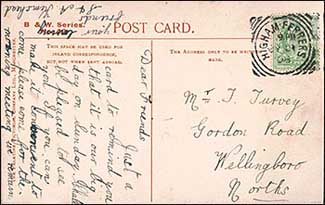 B & W. Series.
POST CARD.
THIS SPACE MAY BE USED FOR
INLAND CORRESPONDENCE,
BUT NOT WHEN SENT ABROAD.
THE ADDRESS ONLY TO BE WRITTEN
HIGHAM FERRERS
Mr T. Turvey
Gordon Road
Wellingboro
Norths
Dear Friends
Just a
card to remind you
that it is our big
day on Sunday. Shall
be pleased to see
you. If you can
make it convenient to
come please come for the
morning meeting
your
friends